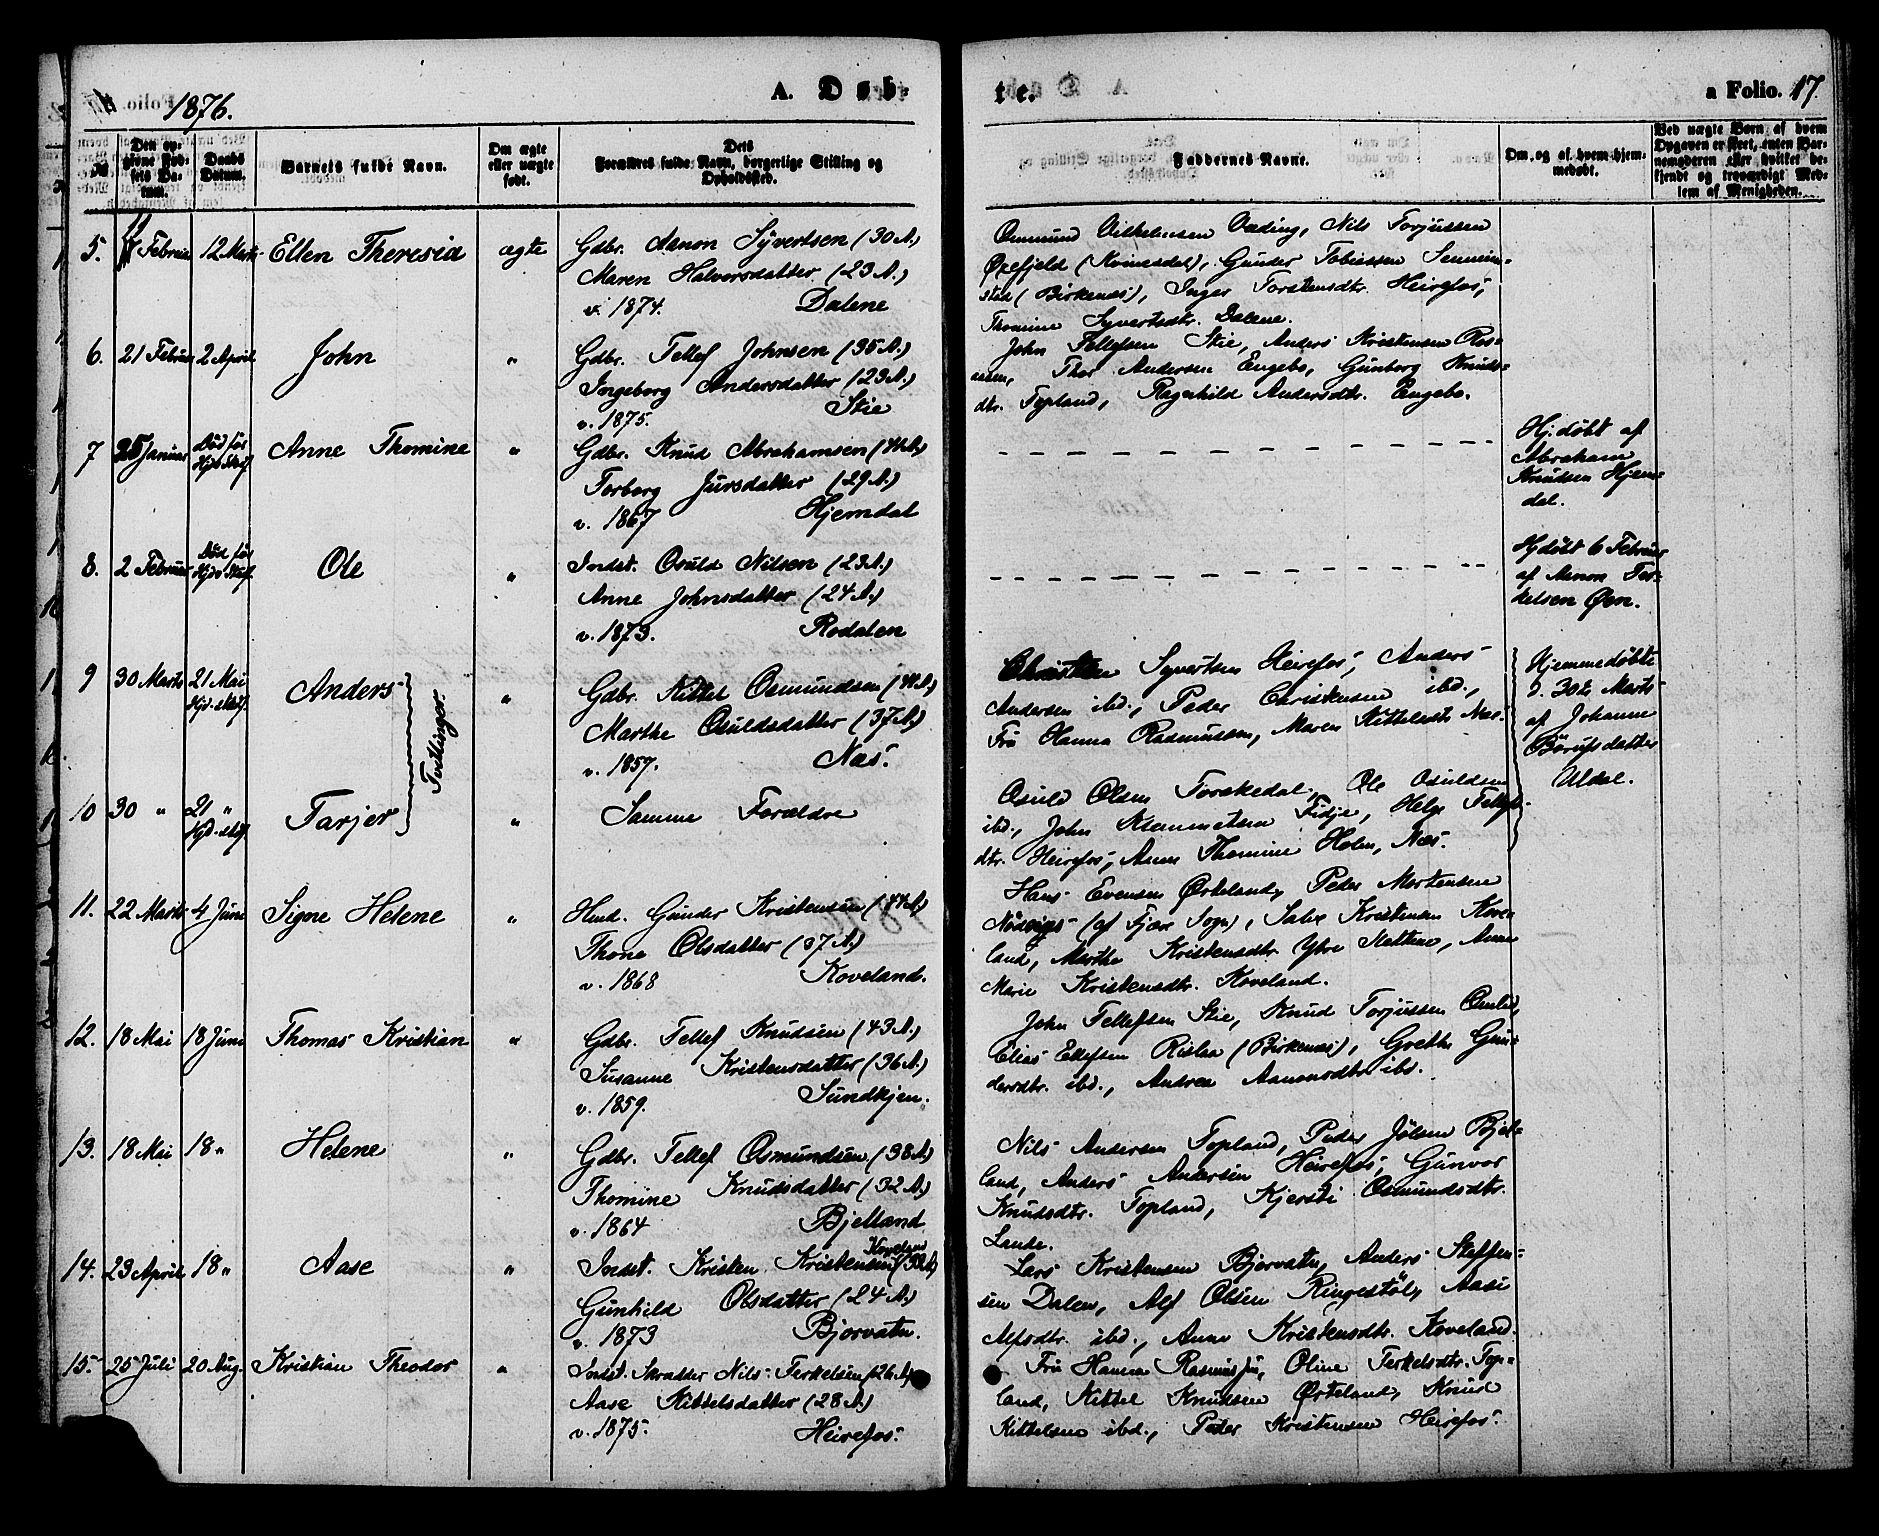 1876.
A. Døb-
te.
a Folio. 17.
№
Den opgivne Fødsels Datum.
Daabs Datum.
Barnets fulde Navn.
Om ægte eller uægte født.
Dets Forældres fulde Navn, borgerlige Stilling og Opholdssted.
Faddernes Navne.
Om, og af hvem hjemmedøbt.
Ved uægte Børn af hvem Opgaven er skeet, enten Barnemoderen eller hvilket bekjendt og troværdigt Medlem af Menigheden.
5. 11 Februar 12 Marts Ellen Theresia ægte Gdbr. Aanon Syvertsen (30 A.)
Maren Halvorsdatter (23 A.)
v. 1874. Dalene
Osmund Vilhelmsen Væding, Nils Torjussen
Øxefjeld (Kvinesdal), Gunder Tobiassen Senum-
stad (Birkenæs), Inger Torstensdtr. Heirefos,
Thomine Syvertsdtr. Dalene.
6. 21 Februar 2 April John " Gdbr. Tellef Johnsen (35 A.)
Ingeborg Andersdatter (23 A.)
v. 1875. Stie
John Tellefsen Stie, Anders Kristensen Ros-
aasen, Thor Andersen Engebo, Gunborg Knuds-
dtr. Topland, Ragnhild Andersdtr. Engebo.
7 25 Januar Død før Hjd. Stadf. Anne Thomine " Gdbr. Knud Abrahamsen (44 A.)
Torborg Jursdatter (29 A.)
v. 1867 Hjemdal
Hj.døbt af
Abraham
Knudsen Hjem-
dal.
8. 2 Februar Død før Hjd. Stadf. Ole " Indst. Osuld Nilsen (23 A.)
Anne Johnsdatter (24 A.)
v. 1873. Rodalen
Hjdøbt 6 Februar
af Aanon Ter-
kelsen Øen.
9 30 Marts 21 Mai Hjd. stadf. Anders " Gdbr. Kittel Osmundsen (44 A.)
Marthe Osuldsdatter (37 A.)
v. 1857. Næs.
Tvillinger.
Christen Syvertsen Heirefos, Anders
Andersen ibd., Peder Christensen ibd.,
Fru Hanna Rasmussen, Maren Kittelsdtr. Næs.
Hjemmedøbte
d. 30te Marts
af Johanne
Børufsdatter
Uldal.
10 30 " 21 " Hjd. stadf. Tarjer " Samme Forældre
Osuld Olsen Torskedal, Ole Osuldsen
ibd., John Klemmetsen Fidje, Helge Tellefs-
dtr. Heirefos, Anne Thomine Holm, Næs.
11. 22 Marts 4 Juni Signe Helene " Hmd. Gunder Kristensen (44 A.)
Thone Olsdatter (37 A.)
v. 1868 Koveland.
Hans Evensen Ørteland, Peder Mortensen
(af Fjære Sogn), Salve Kristensen Kove-
land, Marthe Kristensdtr. Ytre Ketten, Anne
Marie Kristensdtr. Koveland.
12. 18 Mai 18 Juni Thomas Kristian " Gdbr. Tellef Knudsen (43 A.)
Susanne Kristensdatter (36 A.)
v. 1859. Sundkjen.
John Tellefsen Stie, Knud Torjussen Omlid,
Elias Ellefsen Rislaa (Birkenæs), Grethe Gun-
dersdtr. ibd., Andrea Aanonsdtr. ibd.
13. 18 Mai 18 " Helene " Gdbr. Tellef Osmundsen (38 A.)
Thomine Knudsdatter (32 A.)
v. 1864 Bjelland
Nils Andersen Topland, Peder Jølsen Bjel-
land, Anders Andersen Heirefos, Gunvor
Knudsdtr. Topland, Kjersti Osmundsdtr.
Lande.
14. 23 April 18 " Aase " Indst. Kristen Kristensen Koveland (33 A.)
Gunhild Olsdatter (24 A.)
v. 1873 Bjorvatn.
Lars Kristensen Bjorvatn, Anders Steffen-
sen Dalen, Alf Olsen Ringestøl, Aase
Alfsdtr. ibd., Anne Kristensdtr. Koveland.
15. 25 Juli 20 Aug. Kristian Theodor " Indst. Skrædder Nils Terkelsen (26 A.)
Aase Kittelsdatter (28 A.)
v. 1875. Heirefos.
Fru Hanna Rasmussen, Oline Terkelsdtr. Top-
land, Kittel Knudsen Ørteland, Knud
Kittelsen ibd., Peder Kristensen Heirefos.